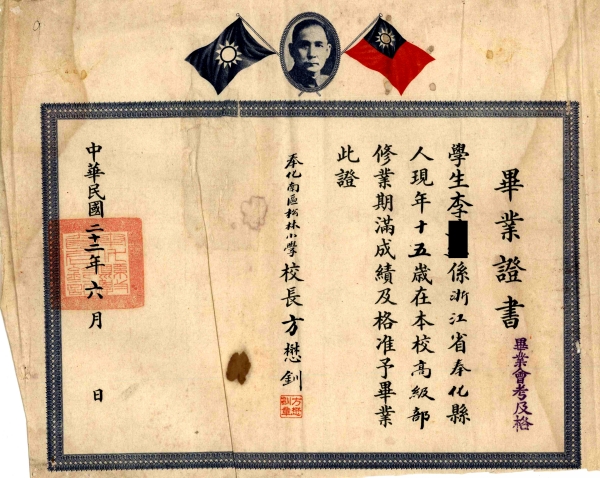 畢業證書
畢業會考及格
學生李
係浙江省奉化縣
人現年十五歲在本校高級部
修業期滿成績及格准予畢業
此證
奉化南區松林小學校長方懋釧
中華民國二十二年六月
日